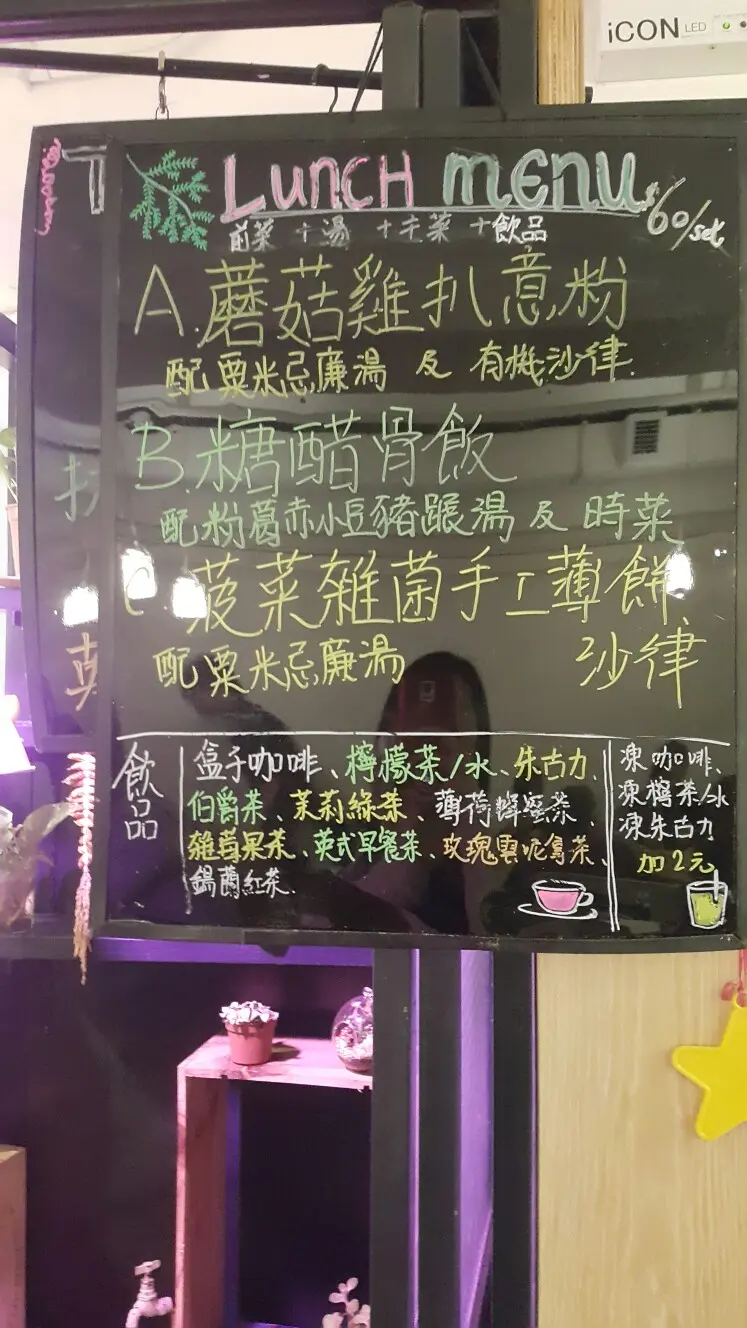 iCON LED
LUNCH MENU $60/set
前菜 + 湯 + 主菜 + 飲品
A. 蘑菇雞扒意粉
配粟米忌廉湯 及 有機沙律.
B. 糖醋骨飯
配粉葛赤小豆豬𨅝湯 及 時菜
C. 菠菜雜菌手工薄餅
配粟米忌廉湯 沙律
飲品
盒子咖啡、檸檬茶/水、朱古力、
伯爵茶、茉莉綠茶、薄荷蜂蜜茶、
雜莓果茶、英式早餐茶、玫瑰雲呢拿茶、
錫蘭紅茶.
凍咖啡、
凍檸茶/水
凍朱古力
加2元